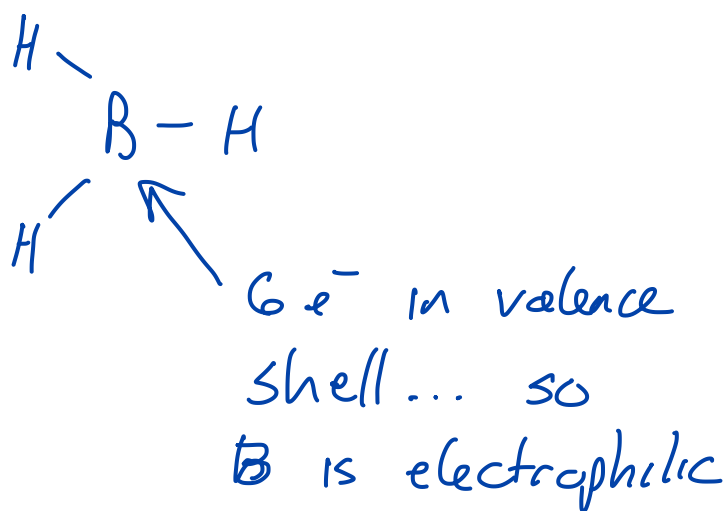 H
B – H
H
6 e⁻ in valence
shell... so
B is electrophilic